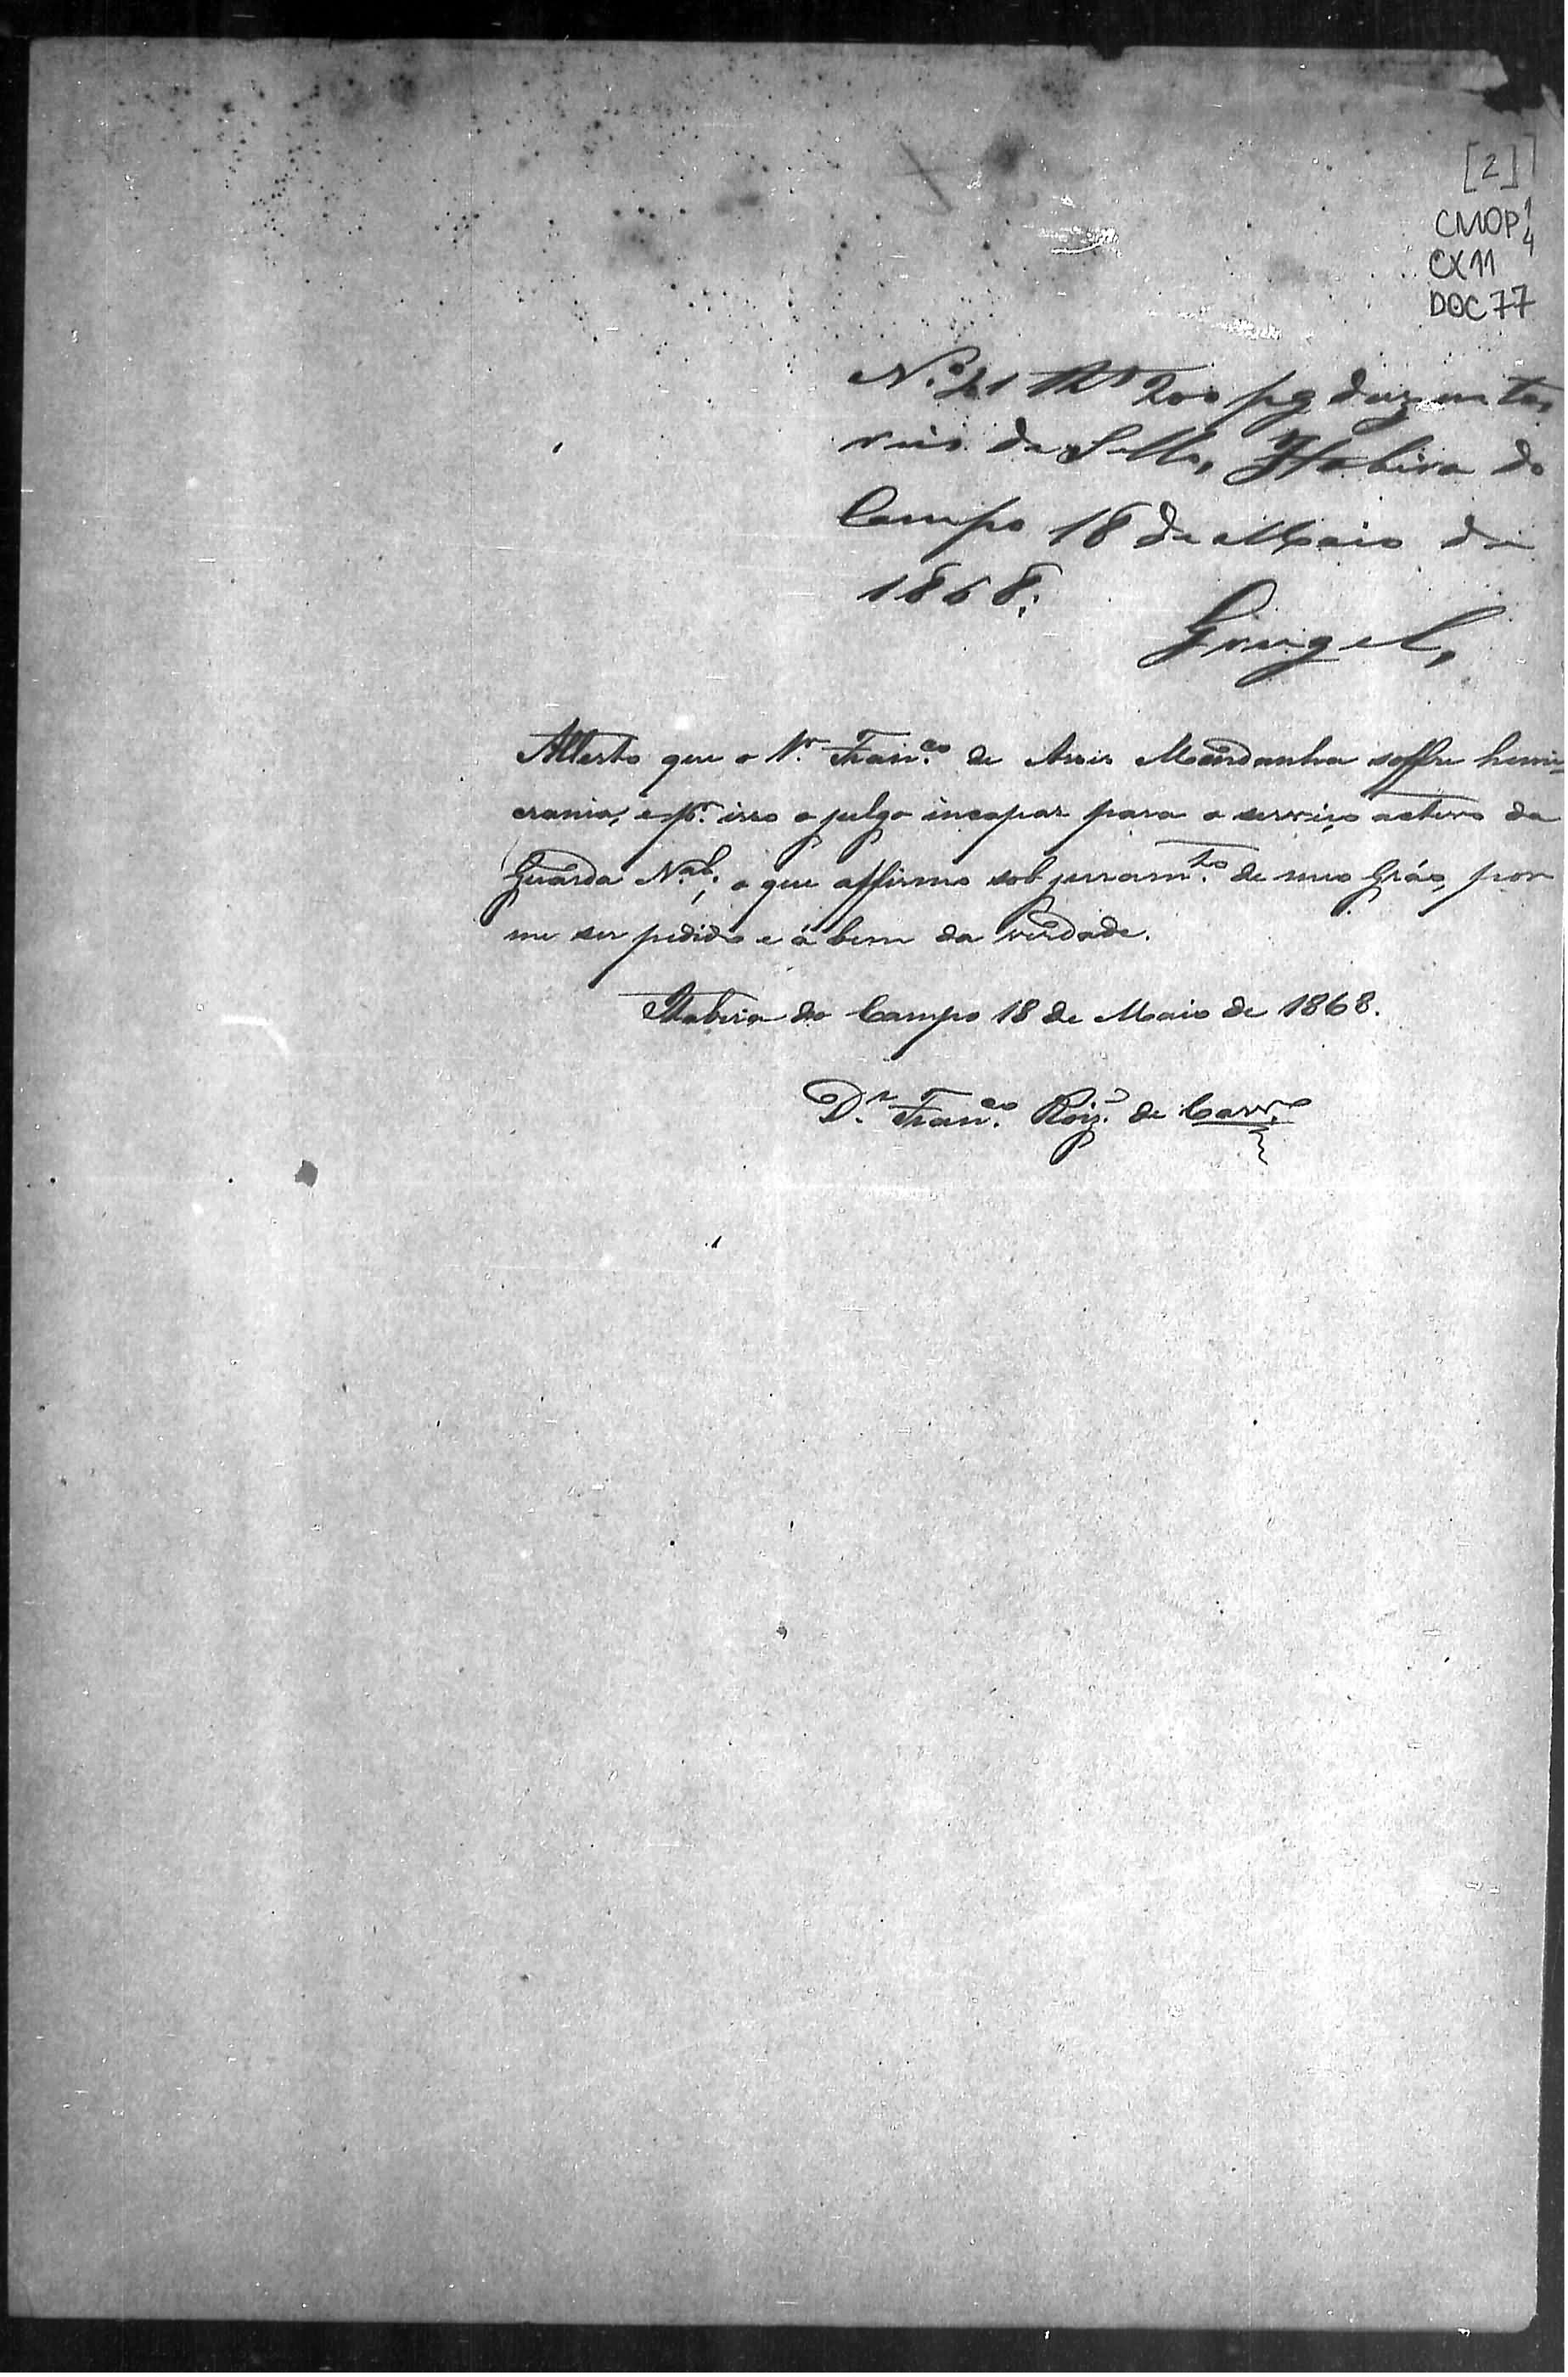 [2]
CMOP 1/4
CX 11
DOC 77
N.º 21 Rs 200 pg duzentos
reis de Sello, Itabira do
Campo 18 de Maio de
1868.
Gurgel,
Attesto que o Sr. Fran.co de Assis Mendanha soffre hemi-
crania, e pr. isso o julgo incapas para o serviço activo da
Guarda N.al; o que affirmo sob juram.to de meo Gráo, por
me ser pedido e á bem da verdade.
Itabira do Campo 18 de Maio de 1868.
Dr. Fran.co Roiz. de